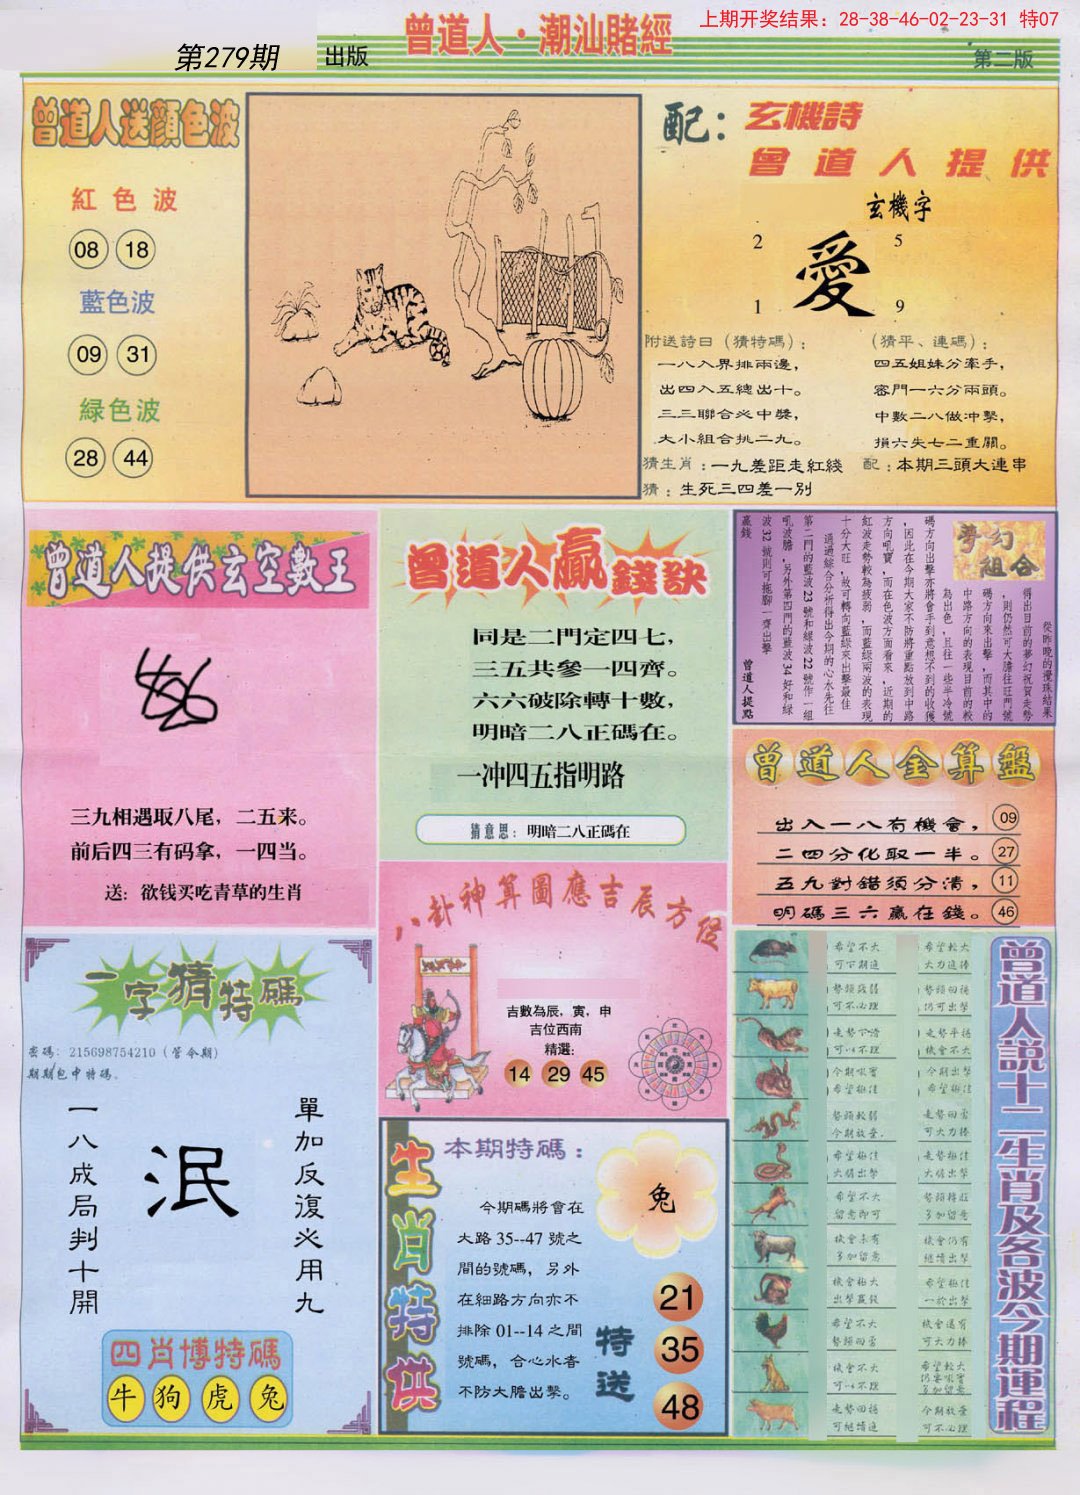 上期开奖结果：28-38-46-02-23-31 特07
曾道人·潮汕賭經
第279期
出版
第二版
曾道人送顏色波
紅色波
08 18
藍色波
09 31
緑色波
28 44
配：
玄機詩
曾道人提供
玄機字
2 5
愛
1 9
附送詩曰（猜特碼）；
一八入界排兩邊，
出四入五總出十。
三三聯合必中獎，
大小組合挑二九。
（猜平、連碼）；
四五姐妹分牽手，
容門一六分兩頭。
中數二八做冲擊，
損六失七二重關。
猜生肖：一九差距走紅綫
配：本期三頭大連串
猜：生死三四差一别
曾道人提供玄空數王
三九相遇取八尾，二五来。
前后四三有码拿，一四当。
送：欲钱买吃青草的生肖
曾道人贏錢訣
同是二門定四七，
三五共參一四齊。
六六破除轉十數，
明暗二八正碼在。
一冲四五指明路
猜意思：明暗二八正碼在
夢幻組合
從昨晚的攪珠結果
得出目前的夢幻祝賀走勢
，則仍然可大膽往旺門號
碼方向來出擊，而其中的
中路方向的表現目前的較
為出色，且往一些半冷號
碼方向出擊亦將會手到意想不到的收獲
，因此在今期大家不防將重點放到中路
方向吼寶，而在色波方面看來，近期的
紅波走勢較為疲弱，而藍綠兩波的表現
十分大旺，故可轉向藍綠來出擊最佳
通過綜合分析得出今期的心水先往
第二門的藍波23號和綠波22號作一組
吼波膽，另外第四門的藍波34好和綠
波32號則可拖腳一齊出擊
贏錢
曾道人提點
曾道人金算盤
出入一八有機會， 09
二四分化取一半。 27
五九對錯須分清， 11
明碼三六贏在錢。 46
八卦神算圖應吉辰方位
吉數為辰，寅，申
吉位西南
精選：
14 29 45
一字猜特碼
密碼：215698754210（管令期）
期期包中特碼。
一八成局判十開
泯
單加反復必用九
四肖博特碼
牛 狗 虎 兔
生肖特供
本期特碼：
今期碼將會在
大路35--47號之
間的號碼，另外
在細路方向亦不
排除01--14之間
號碼，合心水者
不防大膽出擊。
兔
特送
21
35
48
曾道人説十二生肖及各波今期運程
希望不大
可下期進
希望較大
大力追捧
可不必理
仍可出擊
機會不大
今期出擊
今期放棄，
可大力捧
大膽出擊
希望不大
留意即可
多加留意
機會仍有
繼續出擊
出擊贏錢
一於出擊
希望不大
機會還有
可大力捧
機會不大
希望較大
多加留意
走勢回穩
可繼續追
今期放棄
可不必理